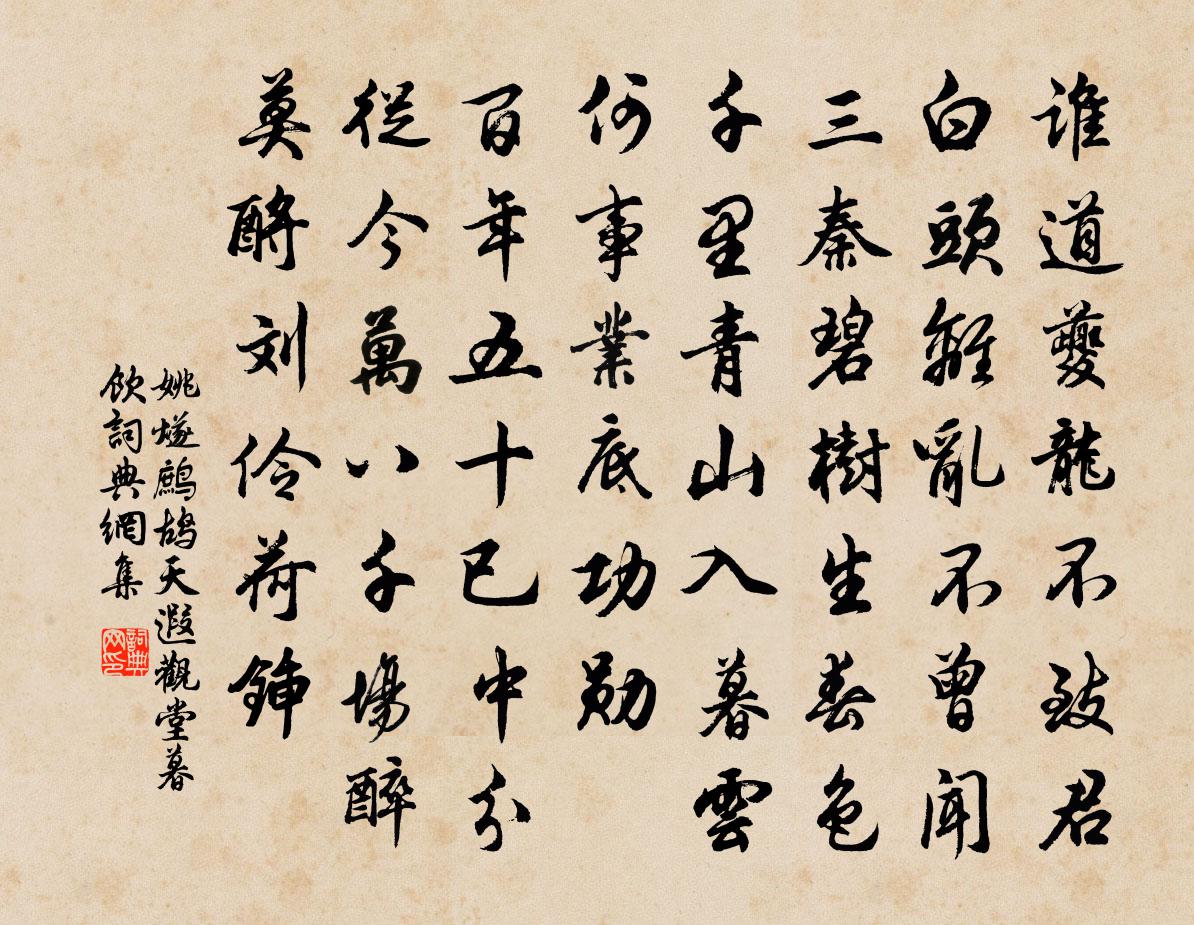 谁道夔龍不致君
白頭離亂不曾聞
三秦碧樹生春色
千里青山入暮雲
何事業底功勋
百年五十已中分
從今萬八千場醉
莫酹刘伶荷鍤
姚燧鷓鴣天遐觀堂暮
飲詞典網集
詞典网印